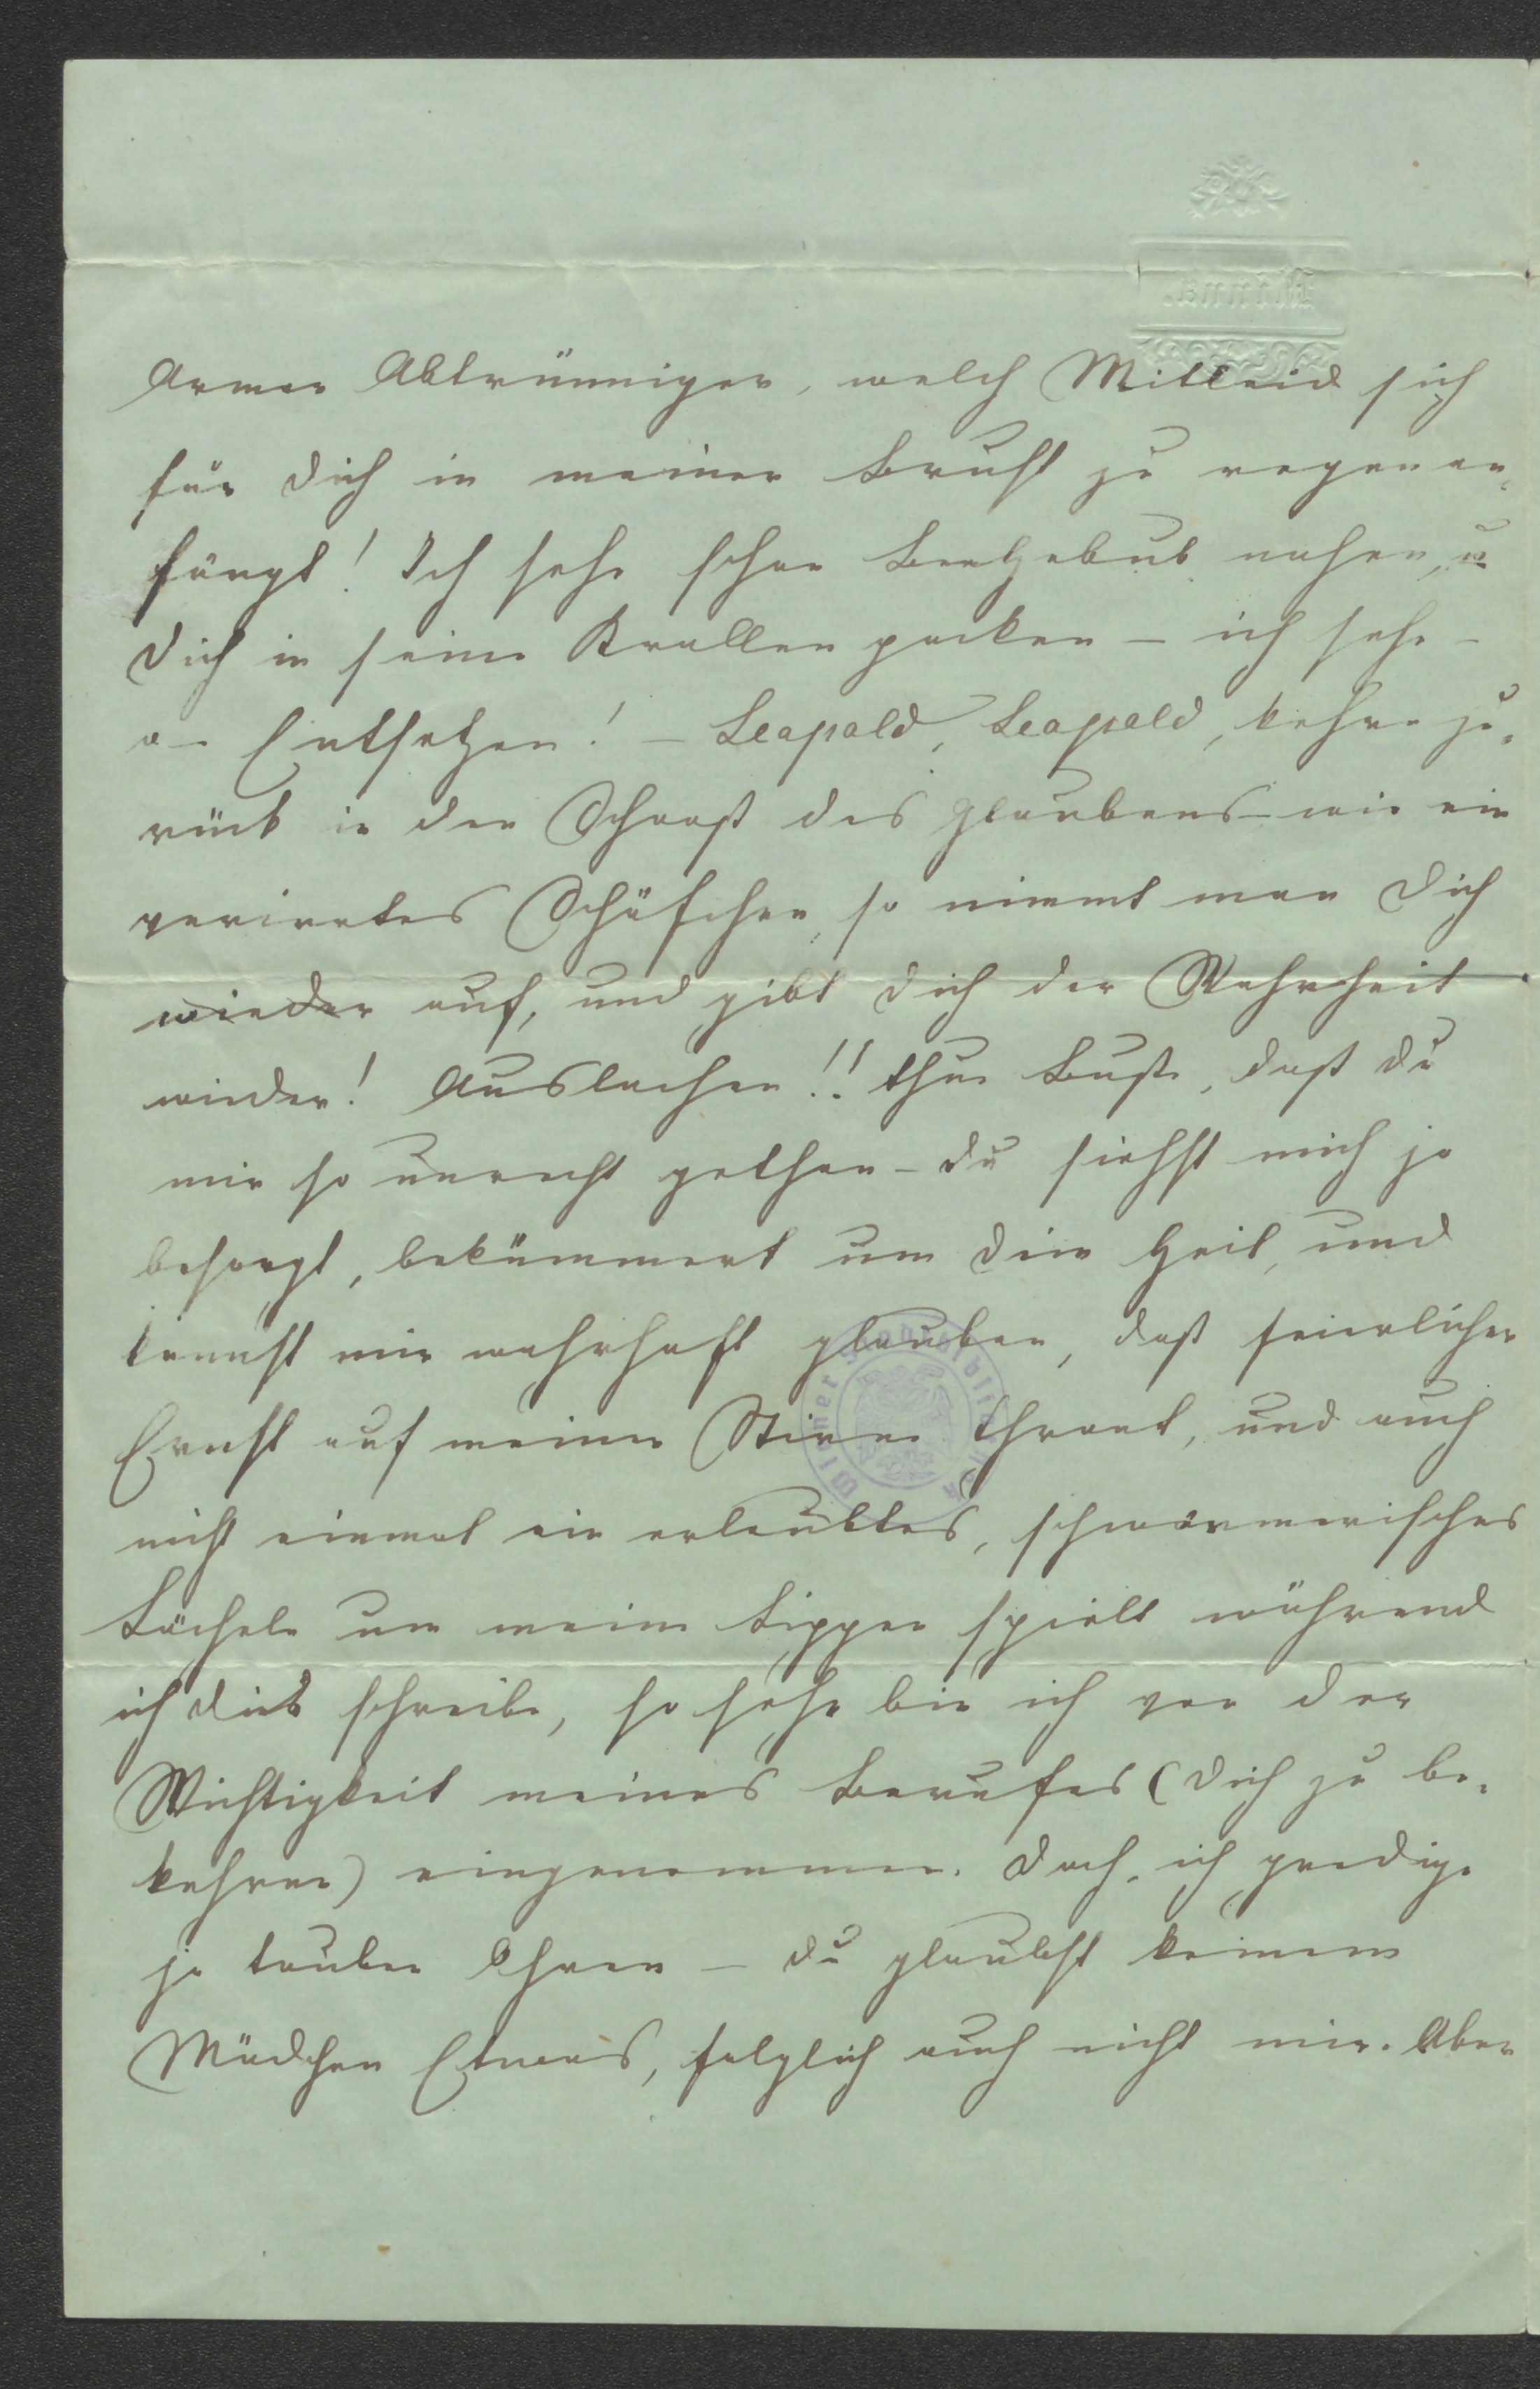 Armer Abtrünniger, welch Mitleid sich
für Dich in meiner Brust zu regen an-
fängt! Ich sehe schon Beelzebub nahen, u
Dich in seine Krallen packen – ich sehe –
o – Entsetzen! – Leopold, Leopold, kehre zu-
rück in den Schooß des Glaubens – wie ein
verirrtes Schäfchen, so nimmt man Dich
wieder auf, und gibt Dich der Wahrheit
wieder! Auslachen!! thue Buße, daß du
mir so unrecht gethan – du siehst mich ja
besorgt, bekümmert um Dein Heil, und
kannst mir wahrhaft glauben, daß feierlicher
Ernst auf meiner Stirne thront, und auch
nicht einmal ein erlaubtes, schwärmerisches
Lächeln um meine Lippen spielt während
ich dies schreibe, so sehr bin ich von der
Wichtigkeit meines Berufes (Dich zu be-
kehren) eingenommen. Doch, ich predige
ja tauben Ohren – du glaubst keinem
Mädchen Etwas, folglich auch nicht mir. Aber